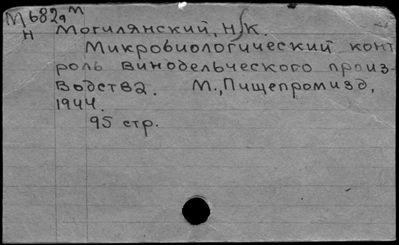 М682а м
н Могилянский, Н.К.
Микробиологический конт
роль винодельческого произ-
водства. М., Пищепромизд,
1944.
95 стр.